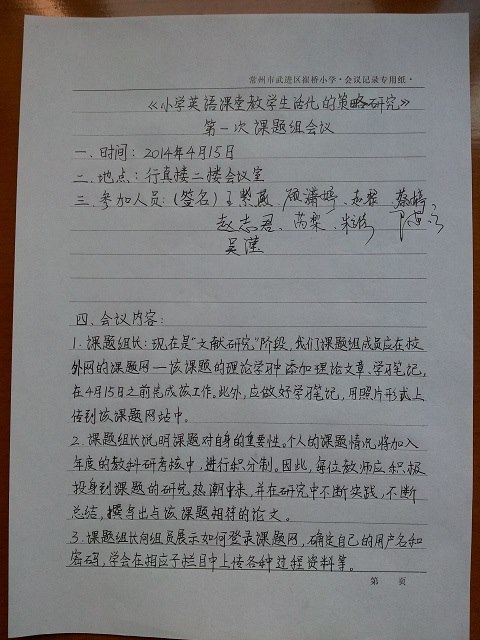 常州市武进区崔桥小学·会议记录专用纸·
《小学英语课堂教学生活化的策略研究》
第一次课题组会议
一、时间：2014年4月15日
二、地点：行真楼二楼会议室
三、参加人员：(签名) 王紫薇 顾满婷
赵志君、芮架、朱
吴滢
四、会议内容：
1. 课题组长：现在是“文献研究”阶段，我们课题组成员应在校
外网的课题网—该课题的理论学习中添加理论文章、学习笔记，
在4月15日之前完成该工作。此外，应做好学习笔记，用照片形式上
传到该课题网站中。
2. 课题组长说明课题对自身的重要性。个人的课题情况将加入
年度的教科研考核中，进行积分制。因此，每位教师应积极
投身到课题的研究热潮中来，并在研究中不断实践，不断
总结，撰写出与该课题相符的论文。
3. 课题组长向组员展示如何登录课题网，确定自己的用户名和
密码，学会在相应子栏目中上传各种过程资料等。
第 页